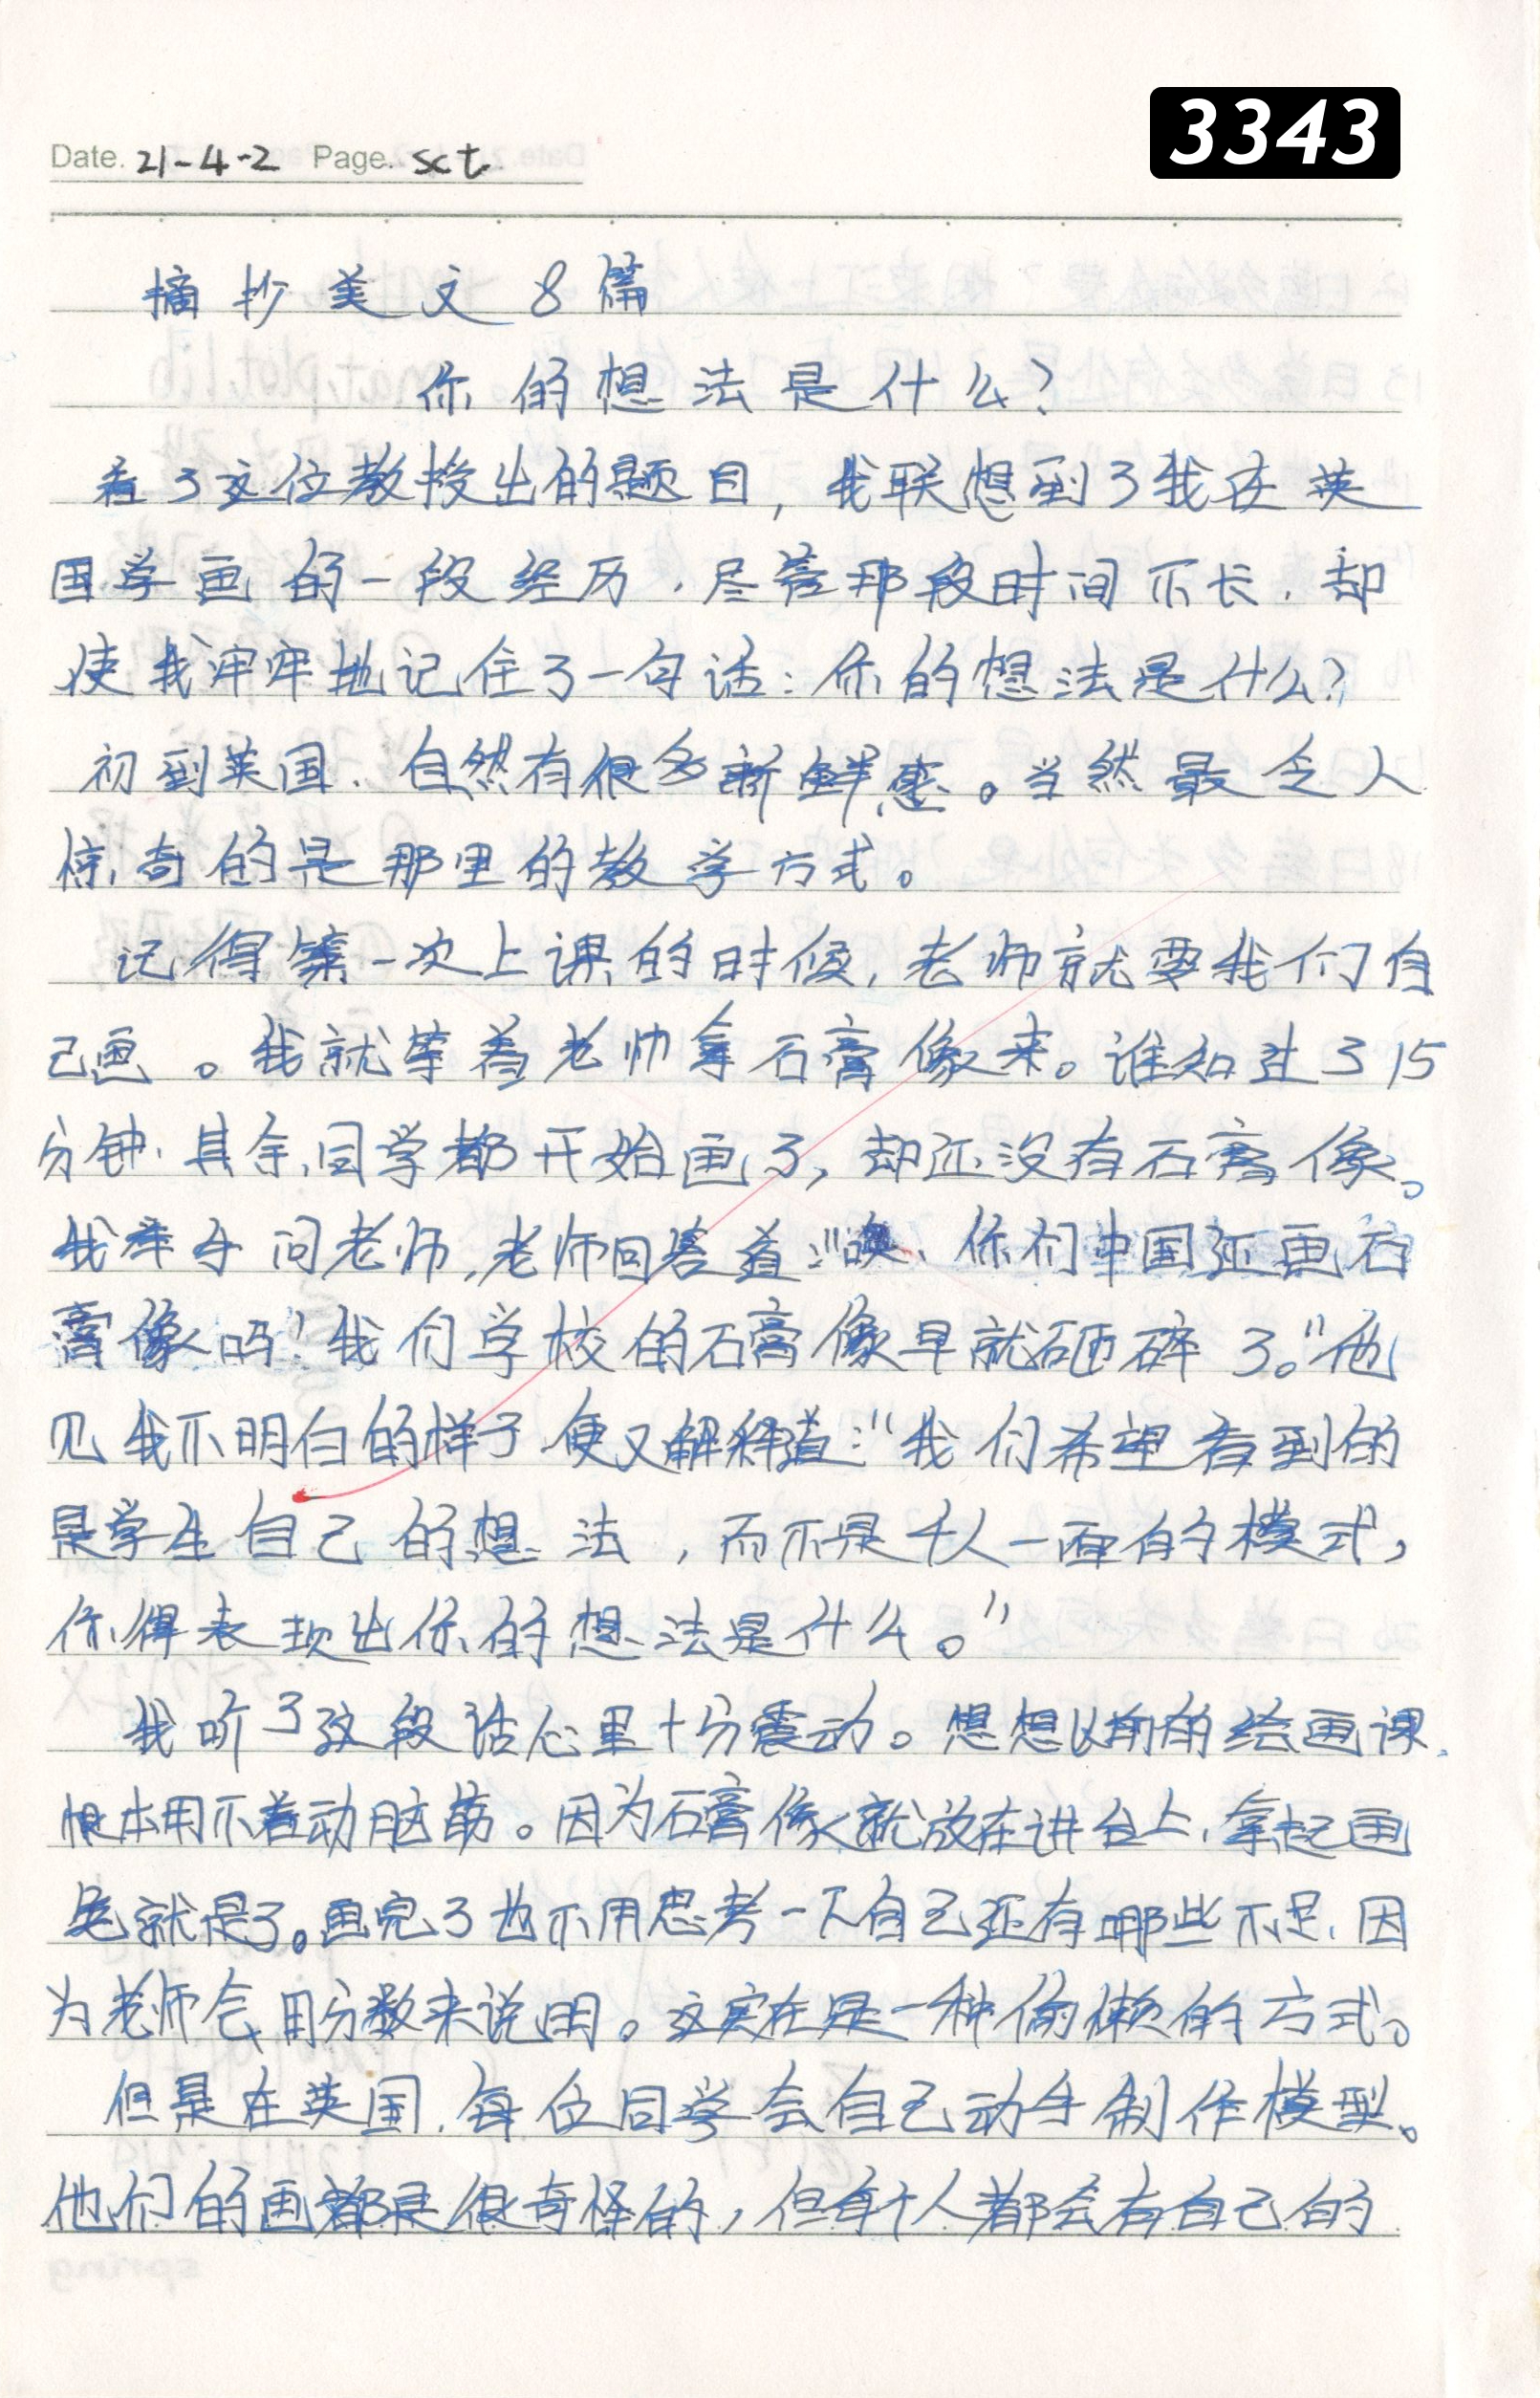 3343
Date. 21-4-2 Page. sct.
摘抄美文8篇
你的想法是什么?
看了这位教授出的题目,我联想到了我在英
国学画的一段经历,尽管那段时间不长,却
使我牢牢地记住了一句话:你的想法是什么?
初到英国、自然有很多新鲜感。当然最令人
惊奇的是那里的教学方式。
记得第一次上课的时候,老师就要我们自
己画。我就等着老师拿石膏像来。谁知过了15
分钟,其余同学都开始画了,却还没有石膏像。
我举手问老师,老师回答道:"噢、你们中国还画石
膏像吗!我们学校的石膏像早就砸碎了。"他
见我不明白的样子,便又解释道:"我们希望看到的
是学生自己的想法,而不是千人一面的模式,
你得表现出你的想法是什么。"
我听了这段话心里十分震动。想想以前的绘画课,
根本用不着动脑筋。因为石膏像就放在讲台上,拿起画
笔就是了。画完了也不用思考一下自己还有哪些不足,因
为老师会用分数来说明。这实在是一种偷懒的方式。
但是在英国,每位同学会自己动手制作模型。
他们的画都是很奇怪的,但每个人都会有自己的